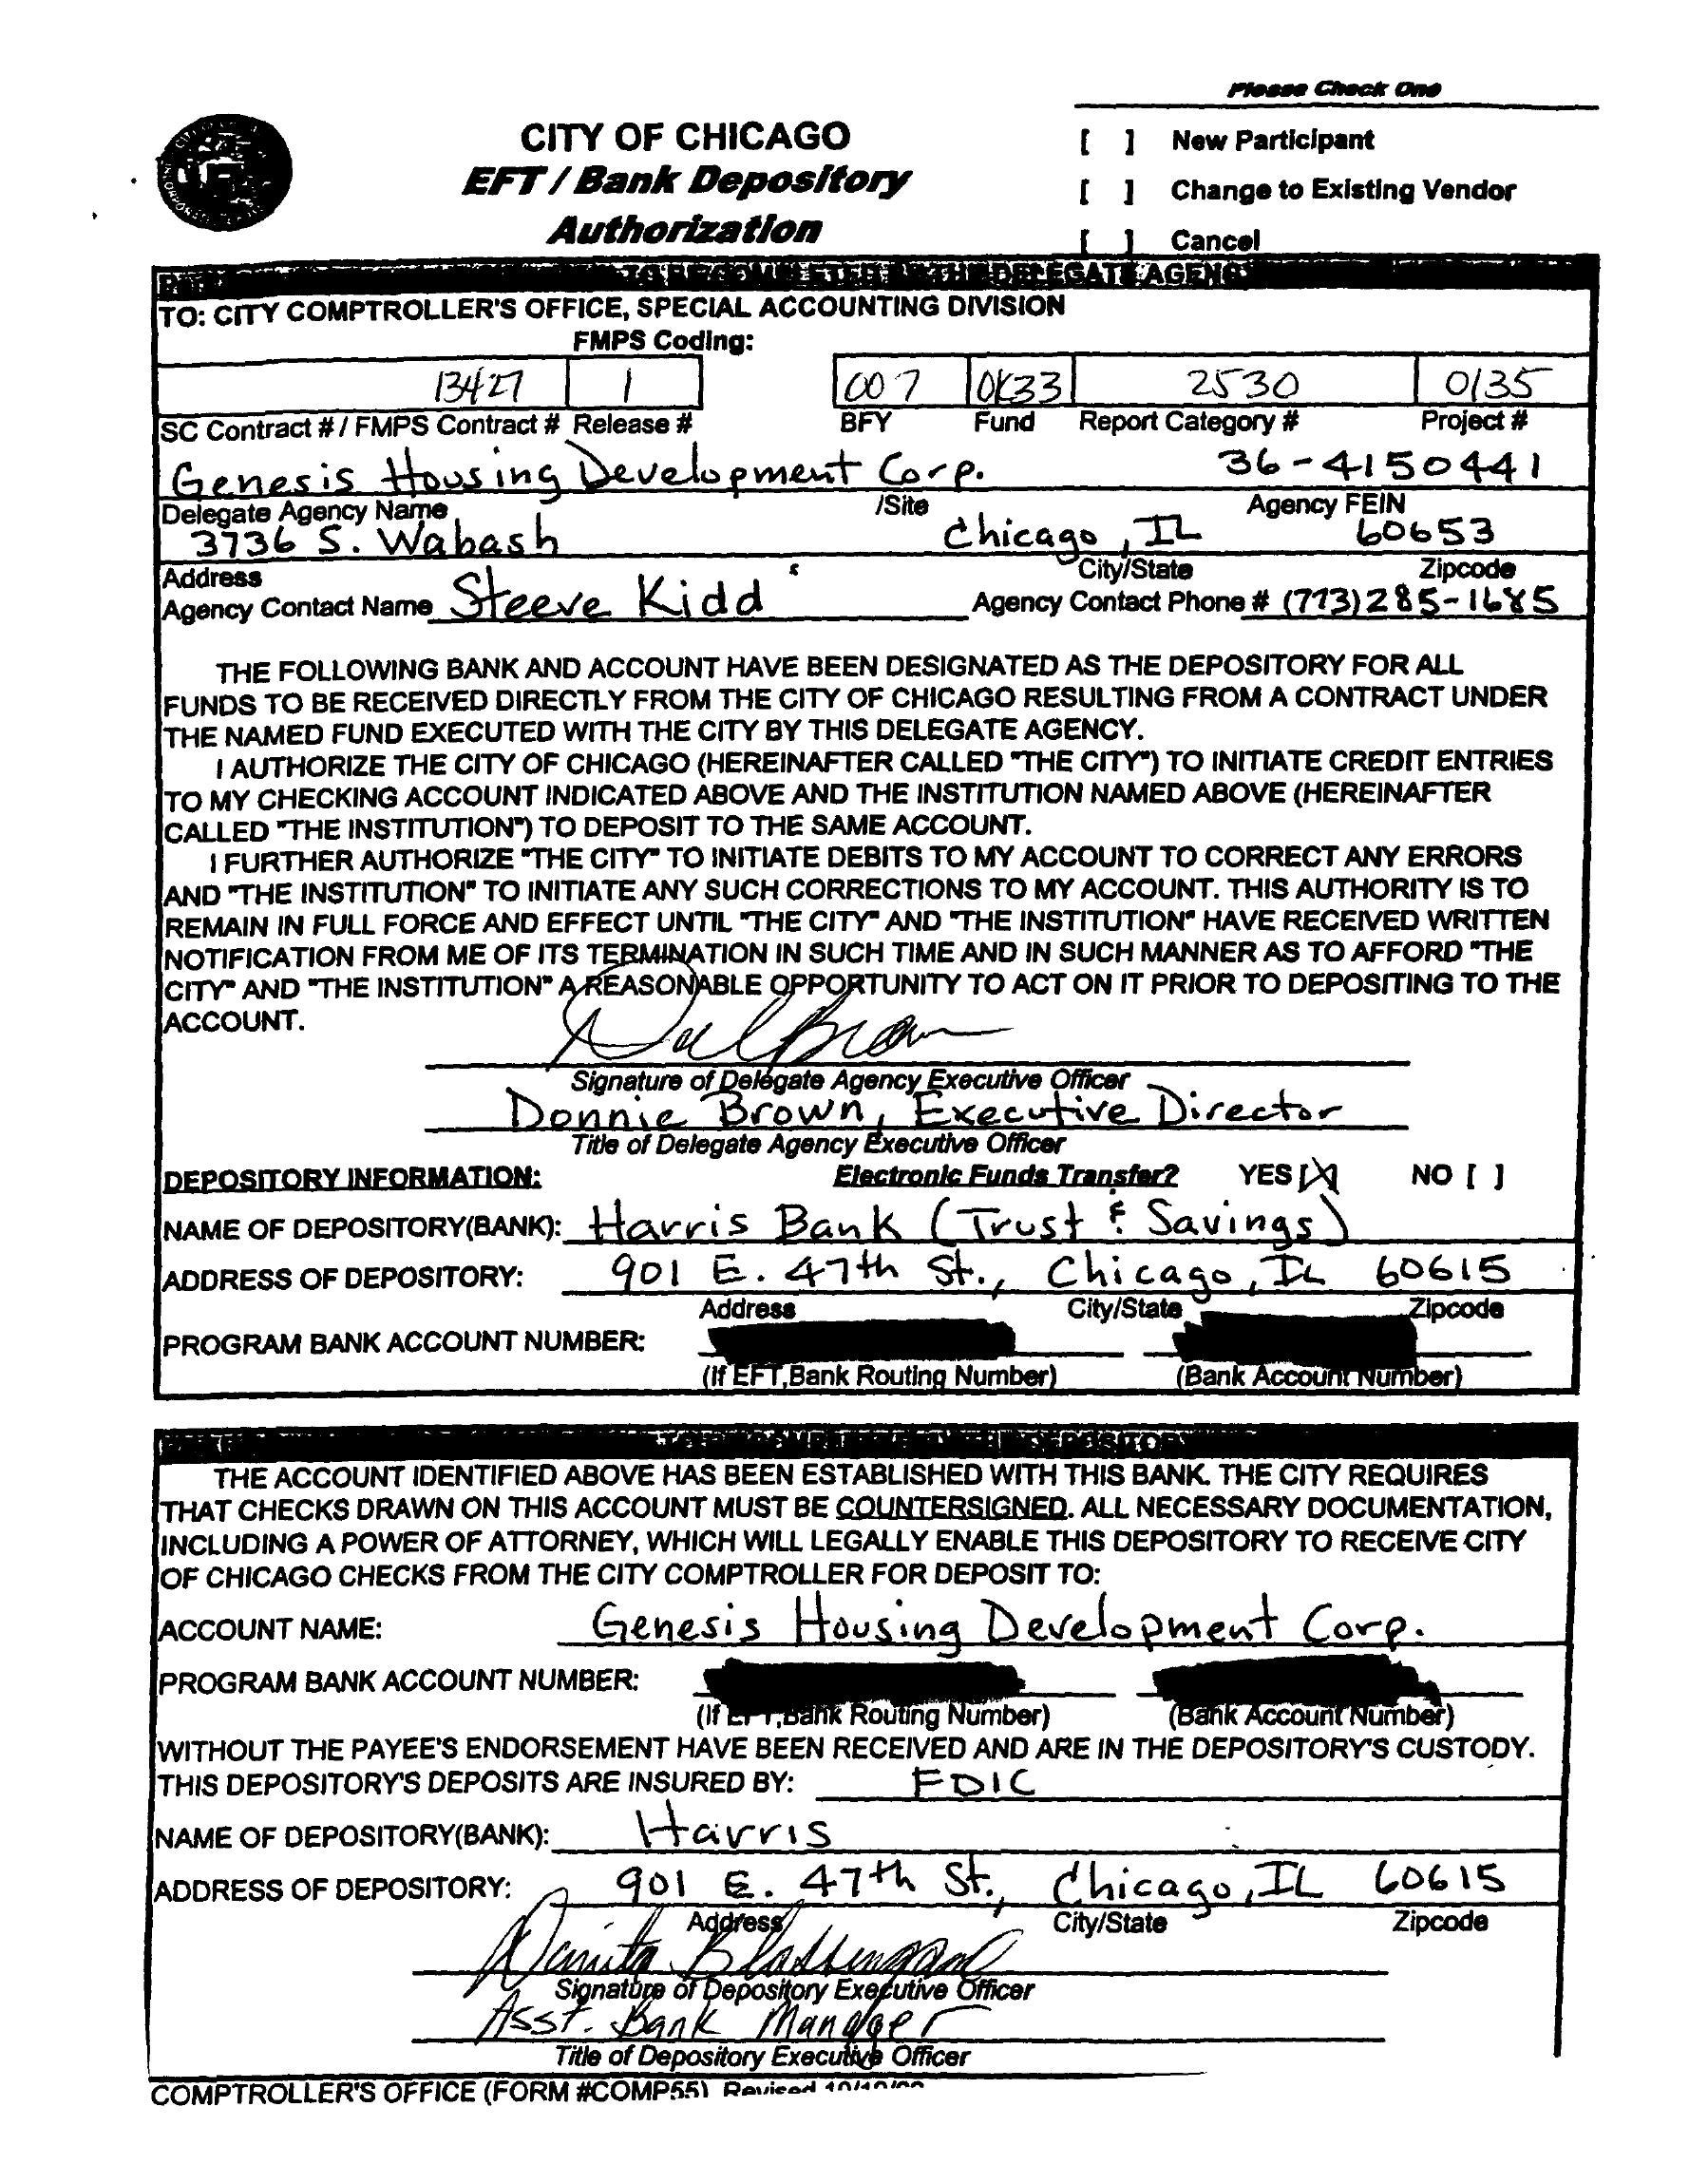 Please Check One
CITY OF CHICAGO
[ ] New Participant
EFT / Bank Depository
[ ] Change to Existing Vendor
Authorization
[ ] Cancel
TO BE COMPLETED BY THE DELEGATE AGENCY
TO: CITY COMPTROLLER'S OFFICE, SPECIAL ACCOUNTING DIVISION
FMPS Coding:
13427 1 007 0K33 2530 0135
SC Contract # / FMPS Contract # Release # BFY Fund Report Category # Project #
Genesis Housing Development Corp. 36-4150441
Delegate Agency Name /Site Agency FEIN
3736 S. Wabash Chicago, IL 60653
Address City/State Zipcode
Agency Contact Name Steeve Kidd Agency Contact Phone # (773) 285-1685
THE FOLLOWING BANK AND ACCOUNT HAVE BEEN DESIGNATED AS THE DEPOSITORY FOR ALL
FUNDS TO BE RECEIVED DIRECTLY FROM THE CITY OF CHICAGO RESULTING FROM A CONTRACT UNDER
THE NAMED FUND EXECUTED WITH THE CITY BY THIS DELEGATE AGENCY.
I AUTHORIZE THE CITY OF CHICAGO (HEREINAFTER CALLED "THE CITY") TO INITIATE CREDIT ENTRIES
TO MY CHECKING ACCOUNT INDICATED ABOVE AND THE INSTITUTION NAMED ABOVE (HEREINAFTER
CALLED "THE INSTITUTION") TO DEPOSIT TO THE SAME ACCOUNT.
I FURTHER AUTHORIZE "THE CITY" TO INITIATE DEBITS TO MY ACCOUNT TO CORRECT ANY ERRORS
AND "THE INSTITUTION" TO INITIATE ANY SUCH CORRECTIONS TO MY ACCOUNT. THIS AUTHORITY IS TO
REMAIN IN FULL FORCE AND EFFECT UNTIL "THE CITY" AND "THE INSTITUTION" HAVE RECEIVED WRITTEN
NOTIFICATION FROM ME OF ITS TERMINATION IN SUCH TIME AND IN SUCH MANNER AS TO AFFORD "THE
CITY" AND "THE INSTITUTION" A REASONABLE OPPORTUNITY TO ACT ON IT PRIOR TO DEPOSITING TO THE
ACCOUNT.
Signature of Delegate Agency Executive Officer
Donnie Brown, Executive Director
Title of Delegate Agency Executive Officer
DEPOSITORY INFORMATION: Electronic Funds Transfer? YES [X] NO [ ]
NAME OF DEPOSITORY(BANK): Harris Bank (Trust & Savings)
ADDRESS OF DEPOSITORY: 901 E. 47th St., Chicago, IL 60615
Address City/State Zipcode
PROGRAM BANK ACCOUNT NUMBER:
(If EFT,Bank Routing Number) (Bank Account Number)
THE ACCOUNT IDENTIFIED ABOVE HAS BEEN ESTABLISHED WITH THIS BANK. THE CITY REQUIRES
THAT CHECKS DRAWN ON THIS ACCOUNT MUST BE COUNTERSIGNED. ALL NECESSARY DOCUMENTATION,
INCLUDING A POWER OF ATTORNEY, WHICH WILL LEGALLY ENABLE THIS DEPOSITORY TO RECEIVE CITY
OF CHICAGO CHECKS FROM THE CITY COMPTROLLER FOR DEPOSIT TO:
ACCOUNT NAME: Genesis Housing Development Corp.
PROGRAM BANK ACCOUNT NUMBER:
(If EFT,Bank Routing Number) (Bank Account Number)
WITHOUT THE PAYEE'S ENDORSEMENT HAVE BEEN RECEIVED AND ARE IN THE DEPOSITORY'S CUSTODY.
THIS DEPOSITORY'S DEPOSITS ARE INSURED BY: FDIC
NAME OF DEPOSITORY(BANK): Harris
ADDRESS OF DEPOSITORY: 901 E. 47th St., Chicago, IL 60615
Address City/State Zipcode
Signature of Depository Executive Officer
Asst. Bank Manager
Title of Depository Executive Officer
COMPTROLLER'S OFFICE (FORM #COMP55) Revised